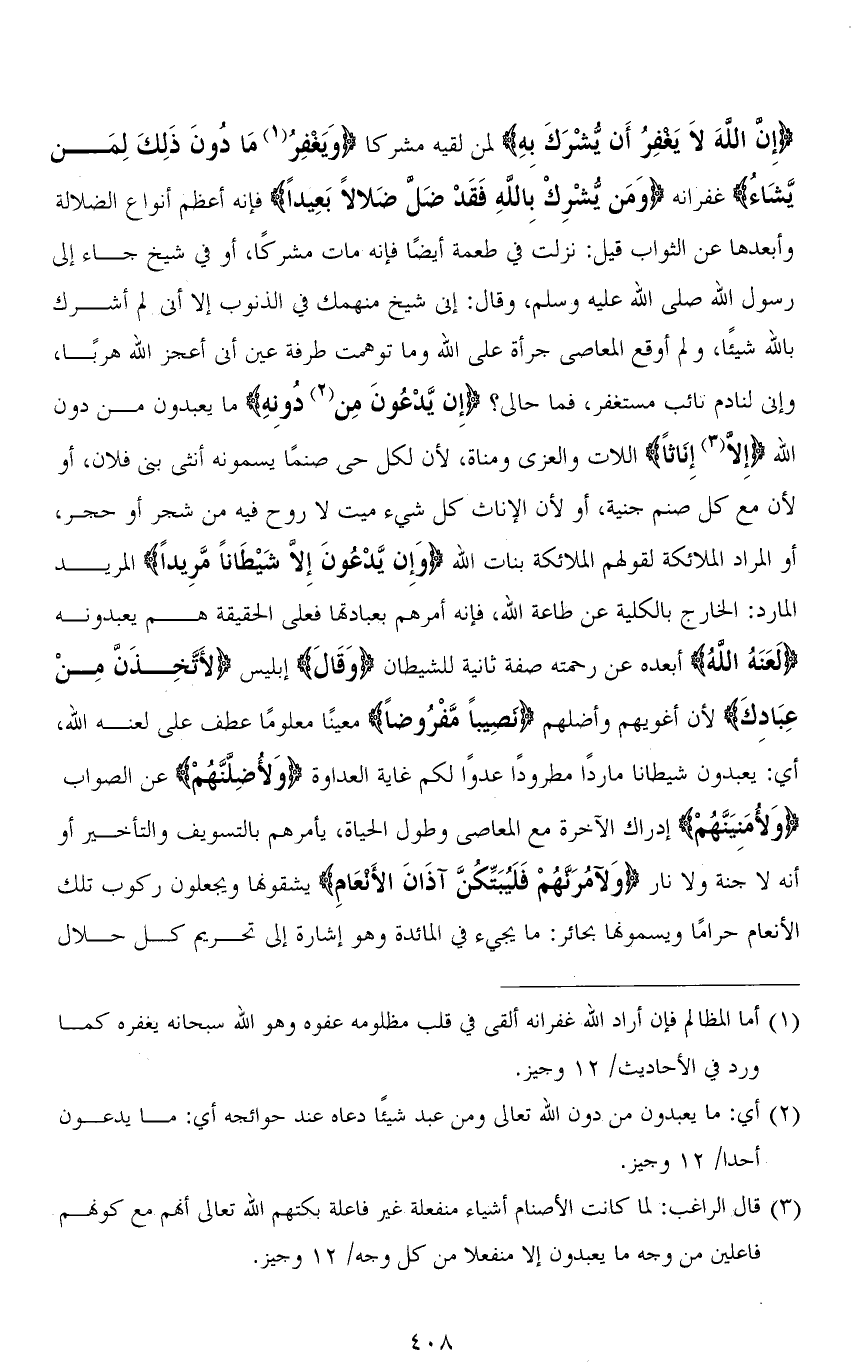 ﴿إِنَّ اللَّهَ لاَ يَغْفِرُ أَن يُّشْرَكَ بِهِ﴾ لمن لقيه مشركا ﴿وَيَغْفِرُ(١) مَا دُونَ ذَلِكَ لِمَــــن
يَّشَاءُ﴾ غفرانه ﴿وَمَن يُّشْرِكْ بِاللَّهِ فَقَدْ ضَلَّ ضَلالاً بَعِيداً﴾ فإنه أعظم أنواع الضلالة
وأبعدها عن الثواب قيل: نزلت في طعمة أيضًا فإنه مات مشركًا، أو في شيخ جـــاء إلى
رسول الله صلى الله عليه وسلم، وقال: إنى شيخ منهمك في الذنوب إلا أنى لم أشـــرك
بالله شيئًا، ولم أوقع المعاصى جرأة على الله وما توهمت طرفة عين أنى أعجز الله هربًـــا،
وإنى لنادم تائب مستغفر، فما حالى؟ ﴿إِن يَّدْعُونَ مِن(٢) دُونِهِ﴾ ما يعبدون مـــن دون
الله ﴿إِلاَّ(٣) إِنَاثاً﴾ اللات والعزى ومناة، لأن لكل حى صنمًا يسمونه أنثى بنى فلان، أو
لأن مع كل صنم جنية، أو لأن الإناث كل شيء ميت لا روح فيه من شجر أو حجر،
أو المراد الملائكة لقولهم الملائكة بنات الله ﴿وَإِن يَّدْعُونَ إِلاَّ شَيْطَاناً مَّرِيداً﴾ المريـــد
المارد: الخارج بالكلية عن طاعة الله، فإنه أمرهم بعبادتها فعلى الحقيقة هـــم يعبدونـــه
﴿لَعَنَهُ اللَّهُ﴾ أبعده عن رحمته صفة ثانية للشيطان ﴿وَقَالَ﴾ إبليس ﴿لأَتَّخِـــذَنَّ مِـــنْ
عِبَادِكَ﴾ لأن أغويهم وأضلهم ﴿نَصِيباً مَّفْرُوضاً﴾ معينًا معلومًا عطف على لعنـــه الله،
أي: يعبدون شيطانا ماردًا مطرودًا عدوًا لكم غاية العداوة ﴿وَلأُضِلَّنَّهُمْ﴾ عن الصواب
﴿وَلأُمَنِيَنَّهُمْ﴾ إدراك الآخرة مع المعاصى وطول الحياة، يأمرهم بالتسويف والتأخـــير أو
أنه لا جنة ولا نار ﴿وَلآمُرَنَّهُمْ فَلَيُبَتِّكُنَّ آذَانَ الأَنْعَامِ﴾ يشقونها ويجعلون ركوب تلك
الأنعام حرامًا ويسمونها بحائر: ما يجيء في المائدة وهو إشارة إلى تحـــريم كـــل حـــلال
(١) أما المظالم فإن أراد الله غفرانه ألقى في قلب مظلومه عفوه وهو الله سبحانه يغفره كمـــا
ورد في الأحاديث/ ١٢ وجيز.
(٢) أي: ما يعبدون من دون الله تعالى ومن عبد شيئًا دعاه عند حوائجه أي: مـــا يدعـــون
أحدا/ ١٢ وجيز.
(٣) قال الراغب: لما كانت الأصنام أشياء منفعلة غير فاعلة بكتهم الله تعالى أنهم مع كونهـــم
فاعلين من وجه ما يعبدون إلا منفعلا من كل وجه/ ١٢ وجيز.
٤٠٨